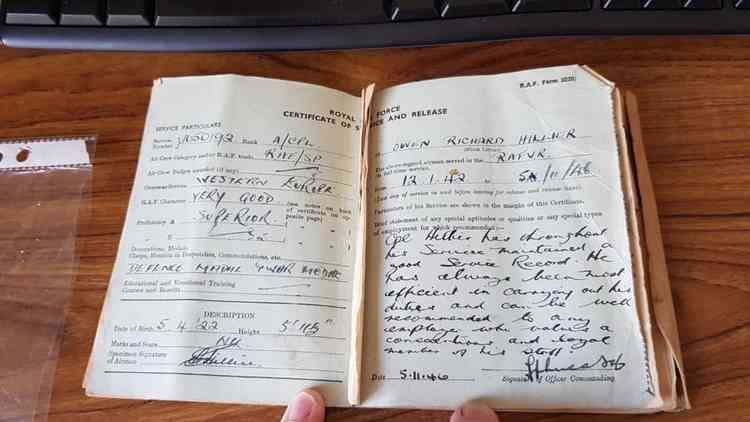 ROYAL AIR FORCE
CERTIFICATE OF SERVICE AND RELEASE
R.A.F. Form 2520/
SERVICE PARTICULARS
Service Number Rank A/CPL
Air Crew Category and/or R.A.F. trade
Air Crew Badges awarded (if any)
Overseas Service WESTERN EUROPE
R.A.F. Character VERY GOOD (see notes on back of certificate on opposite page)
Proficiency A SUPERIOR
" B
Decorations, Medals, Clasps, Mention in Despatches, Commendations, etc.
DEFENCE MEDAL WAR MEDAL
Educational and Vocational Training Courses and Results
DESCRIPTION
Date of Birth 5.4.'22 Height
Marks and Scars NIL
Specimen Signature of Airman
OWEN RICHARD HILLIER
(Block Letters)
The above-named airman served in the RAFVR
on full-time service,
from 12.1.42 to 5/11/46
(Last day of service in unit before leaving for release and release leave).
Particulars of his Service are shown in the margin of this Certificate.
Brief statement of any special aptitudes or qualities or any special types
of employment for which recommended:—
Cpl Hillier has throughout
his Service maintained a
good Service Record. He
has always been most
efficient in carrying out his
duties and can be well
recommended to any
employer who values a
conscientious and loyal
member of his staff.
Date 5.11.46
Signature of Officer Commanding